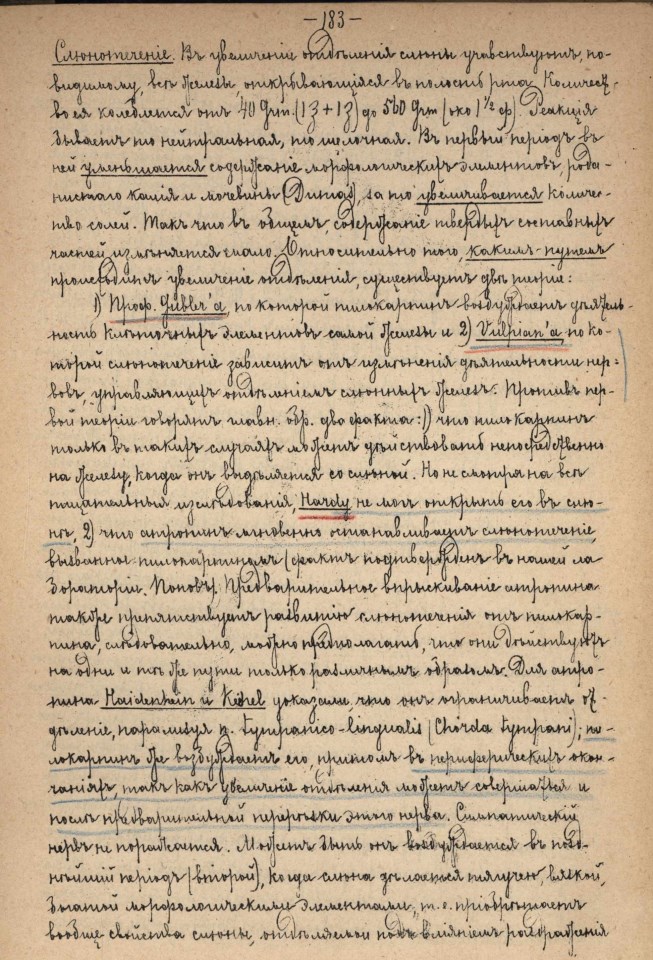 —183—
Слюнотеченіе. Въ увеличеніи отдѣленія слюны учавствуютъ, по-
видимому, всѣ железы, открывающіяся въ полость рта. Количес-
во ея колеблется отъ 40 Grm. (1ʒ + 1ʒ) до 560 Grm (око 1 1/2 ф). Реакція
бываетъ то нейтральная, то щелочная. Въ первый періодъ въ
ней уменьшается содержаніе морфологическихъ элементовъ, рода-
нистаго калія и мочевины (Dumas), за то увеличивается количес-
тво солей. Такъ что въ общемъ содержаніе твердыхъ составныхъ
частей измѣняется мало. Относительно того, какимъ-путемъ
происходитъ увеличеніе отдѣленія, существуетъ двѣ теоріи:
1) Проф. Gubler'а, по которой пилокарпинъ возбуждаетъ дѣятель-
ность клѣточныхъ элементовъ самой железы и 2) Vulpian'а по ко-
торой слюнотеченіе зависитъ отъ измѣненія дѣятельности нер-
вовъ, управляющихъ отдѣленіемъ слюнныхъ железъ. Противъ пер-
вой теоріи говорятъ главн. обр. два факта: 1) что пилокарпинъ
только въ такихъ случаяхъ можетъ дѣйствовать непосредственно
на железу, когда онъ выдѣляется со слюной. Но не смотря на всѣ
тщательныя изслѣдованія, Hardy не могъ открыть его въ слю-
нѣ, 2) что атропинъ мгновенно останавливаетъ слюнотеченіе,
вызванное пилокарпиномъ (фактъ подтвержденъ въ нашей ла
бораторіи. Поповъ). Предварительное впрыскиваніе атропина
также препятствуетъ развитію слюнотеченія отъ пилокар-
пина, слѣдовательно, можно предполагать, что они дѣйствуютъ
на одни и тѣ же пути только различнымъ образомъ. Для атро-
пина Haidenhein и Köhel доказали, что онъ ограничиваетъ от-
дѣленіе, парализуя n. tympanico-lingualis (Chorda tympani); пи-
локарпинъ же возбуждаетъ его, притомъ въ периферическихъ окон-
чаніяхъ, такъ какъ увеличеніе отдѣленія можетъ совершаться и
послѣ предварительной перерѣзки этого нерва. Симпатическій
нервъ не поражается. Можетъ быть онъ возбуждается въ позд-
нѣйшій періодъ (второй), когда слюна дѣлается тягучей, вязкой,
богатой морфологическими элементами, т. е. пріобрѣтаетъ
вообще свойства слюны, отдѣляемой подъ вліяніемъ раздраженія